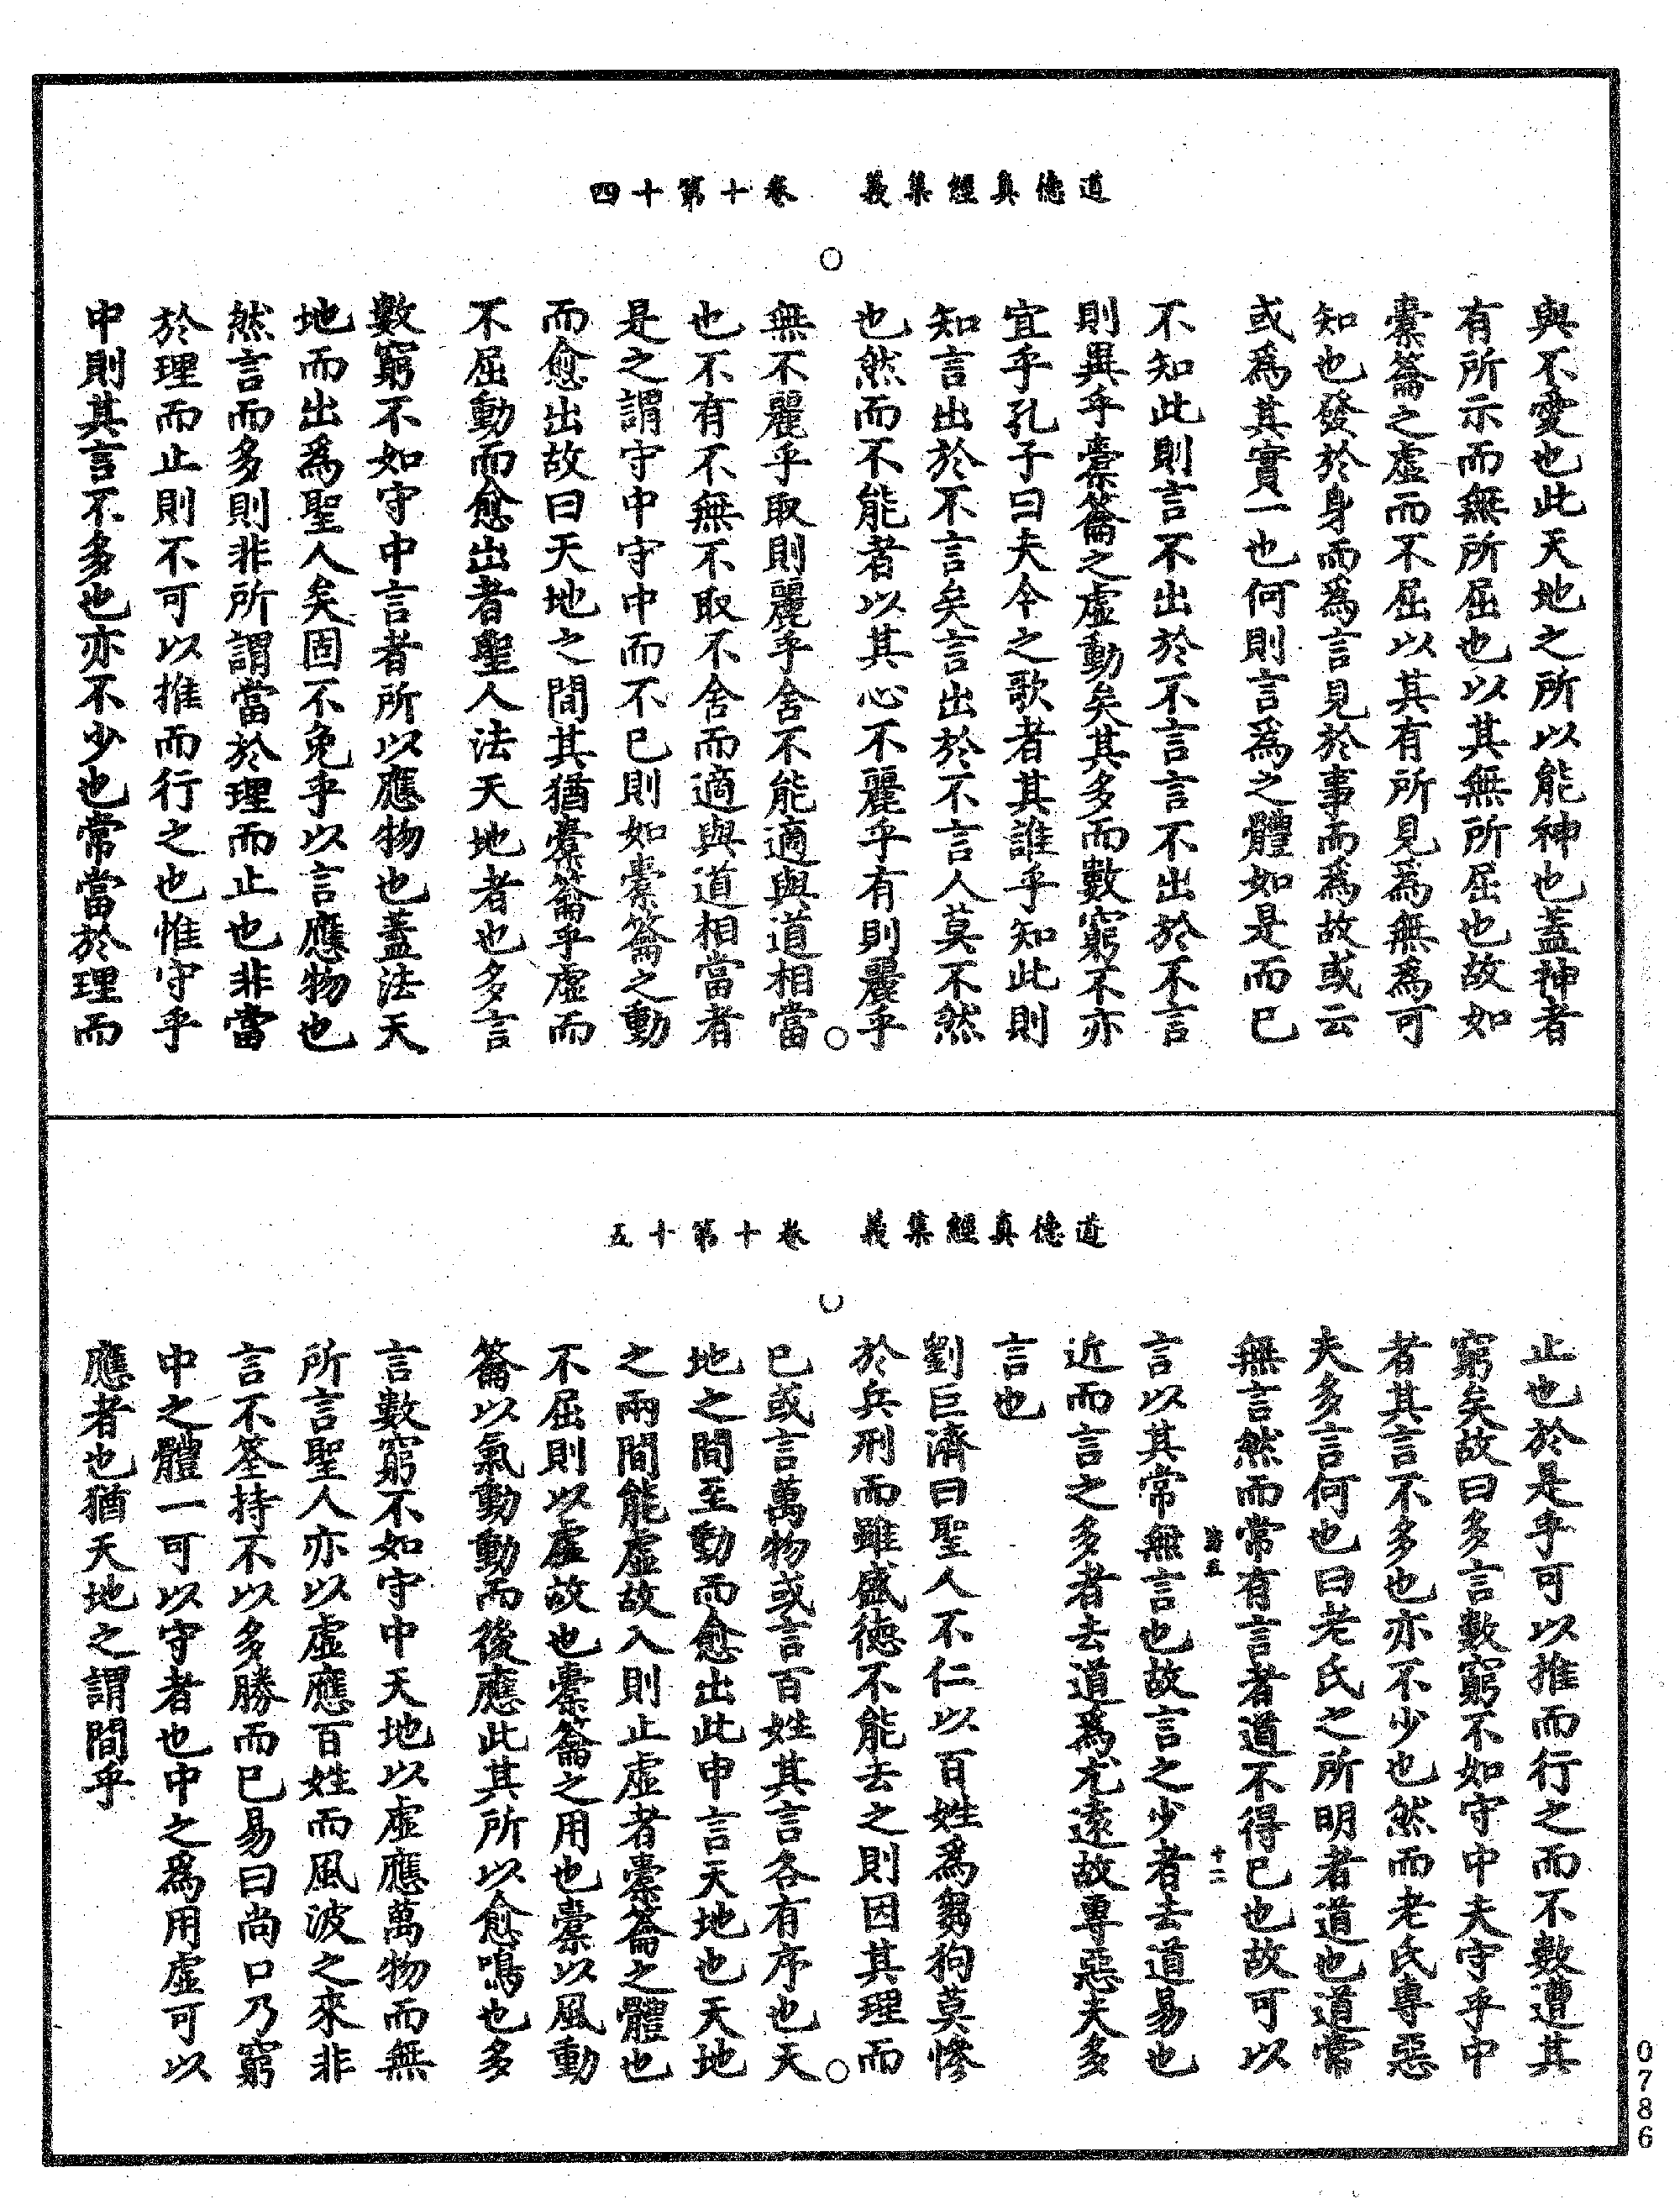 道德真經集義 卷十第十四
與不愛也此天地之所以能神也蓋神者
有所示而無所屈也以其無所屈也故如
橐籥之虛而不屈以其有所見為無為可
知也發於身而為言見於事而為故或云
或為其實一也何則言為之體如是而已
不知此則言不出於不言言不出於不言
則異乎橐籥之虛動矣其多而數窮不亦
宜乎孔子曰夫今之歌者其誰乎知此則
知言出於不言矣言出於不言人莫不然
也然而不能者以其心不麗乎有則麗乎
無不麗乎取則麗乎舍不能適與道相當
也不有不無不取不舍而適與道相當者
是之謂守中守中而不已則如橐籥之動
而愈出故曰天地之間其猶橐籥乎虛而
不屈動而愈出者聖人法天地者也多言
數窮不如守中言者所以應物也蓋法天
地而出為聖人矣固不免乎以言應物也
然言而多則非所謂當於理而止也非當
於理而止則不可以推而行之也惟守乎
中則其言不多也亦不少也常當於理而
道德真經集義 卷十第十五
止也於是乎可以推而行之而不數遭其
窮矣故曰多言數窮不如守中夫守乎中
者其言不多也亦不少也然而老氏專惡
夫多言何也曰老氏之所明者道也道常
無言然而常有言者道不得已也故可以
十二
言以其常無言也故言之少者去道易也
近而言之多者去道為尤遠故專惡夫多
言也
劉巨濟曰聖人不仁以百姓為芻狗莫慘
於兵刑而雖盛德不能去之則因其理而
已或言萬物或言百姓其言各有序也天
地之間至動而愈出此申言天地也天地
之兩間能虛故入則止虛者橐籥之體也
不屈則以虛故也橐籥之用也橐以風動
籥以氣動動而後應此其所以愈鳴也多
言數窮不如守中天地以虛應萬物而無
所言聖人亦以虛應百姓而風波之來非
言不筌持不以多勝而已易曰尚口乃窮
中之體一可以守者也中之為用虛可以
應者也猶天地之謂間乎
0786